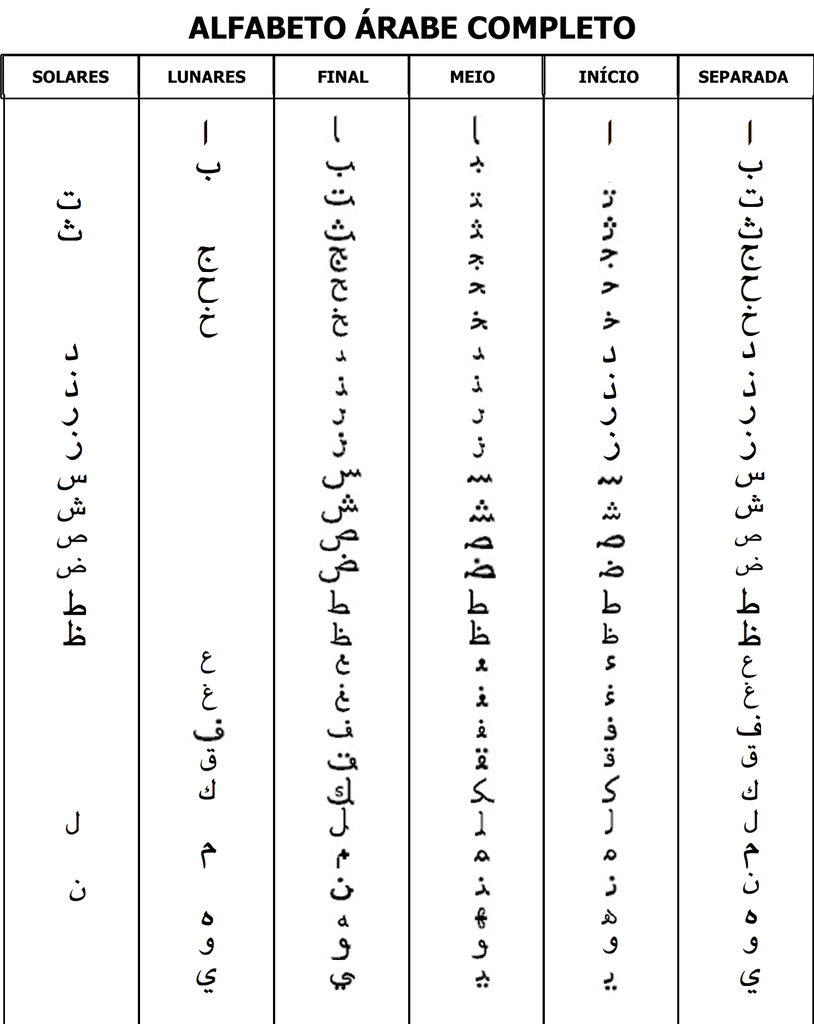 ALFABETO ÁRABE COMPLETO
SOLARES LUNARES FINAL MEIO INÍCIO SEPARADA
ا ـا ـا ا ا
ب ـب ـبـ ب
ت ـت ـتـ تـ ت
ث ـث ـثـ ثـ ث
ج ـج ـجـ جـ ج
ح ـح ـحـ حـ ح
خ ـخ ـخـ خـ خ
د ـد ـد د د
ذ ـذ ـذ ذ ذ
ر ـر ـر ر ر
ز ـز ـز ز ز
س ـس ـسـ سـ س
ش ـش ـشـ شـ ش
ص ـص ـصـ صـ ص
ض ـض ـضـ ضـ ض
ط ـط ـطـ طـ ط
ظ ـظ ـظـ ظـ ظ
ع ـع ـعـ عـ ع
غ ـغ ـغـ غـ غ
ف ـف ـفـ فـ ف
ق ـق ـقـ قـ ق
ك ـك ـكـ كـ ك
ل ـل ـلـ لـ ل
م ـم ـمـ مـ م
ن ـن ـنـ نـ ن
ه ـه ـهـ هـ ه
و ـو ـو و و
ي ـي ـيـ يـ ي